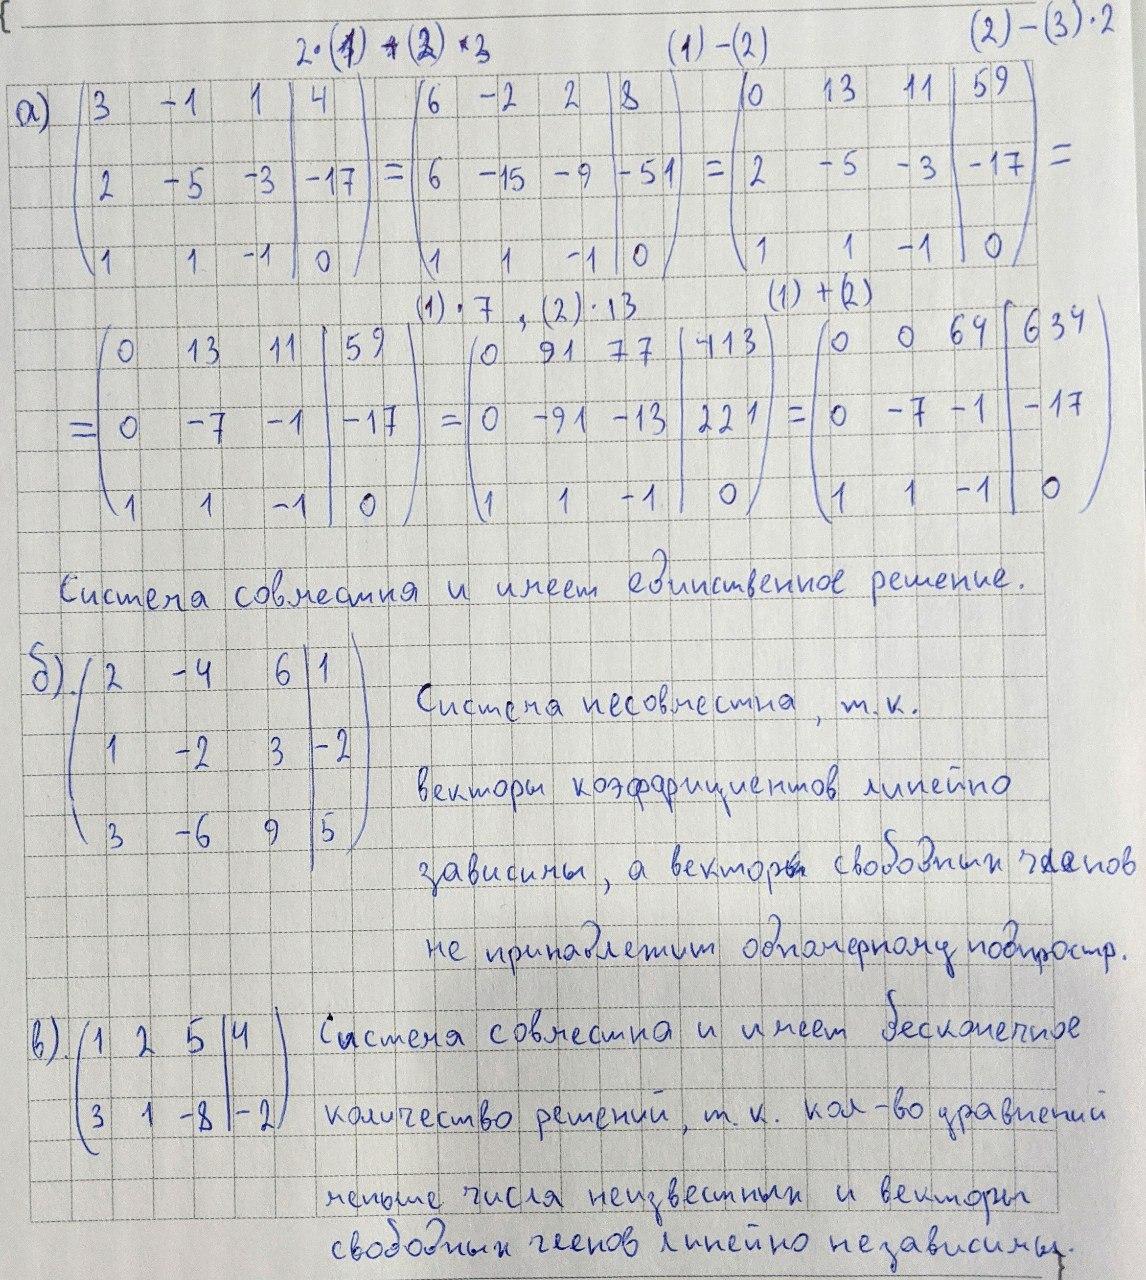 2·(1) + (2) · 3   (1) - (2)   (2) - (3)·2
а) (3 -1 1 | 4) = (6 -2 2 | 8) = (0 13 11 | 59) =
(2 -5 -3 | -17) (6 -15 -9 | -51) (2 -5 -3 | -17)
(1 1 -1 | 0) (1 1 -1 | 0) (1 1 -1 | 0)
(1)·7, (2)·13   (1) + (2)
= (0 13 11 | 59) = (0 91 77 | 413) = (0 0 64 | 634)
(0 -7 -1 | -17) (0 -91 -13 | 221) (0 -7 -1 | -17)
(1 1 -1 | 0) (1 1 -1 | 0) (1 1 -1 | 0)
Система совместна и имеет единственное решение.
б). (2 -4 6 | 1)
(1 -2 3 | -2)
(3 -6 9 | 5)
Система несовместна, т.к.
векторы коэффициентов линейно
зависимы, а вектор свободных членов
не принадлежит одномерному подпростр.
в). (1 2 5 | 4)
(3 1 -8 | -2)
Система совместна и имеет бесконечное
количество решений, т.к. кол-во уравнений
меньше числа неизвестных и векторы
свободных членов линейно независимы.